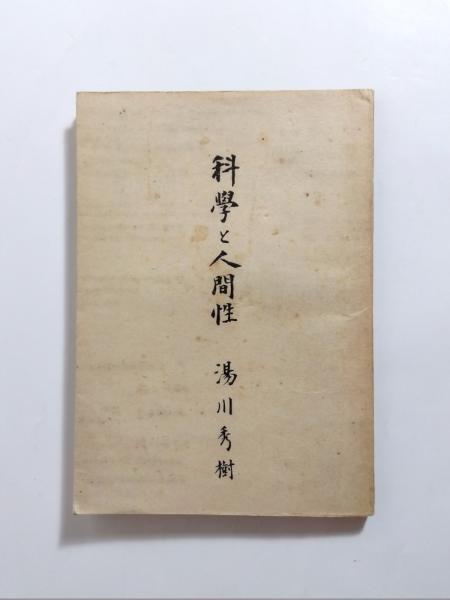 科學と人間性　湯川秀樹